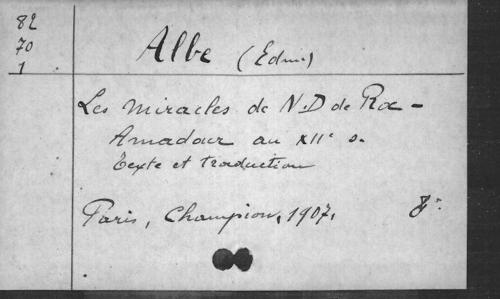 82
70
1
Albe (Edm.)
Les miracles de N.D de Roc-
Amadour au XIIe s.
Texte et traduction
Paris, Champion, 1907. 8°